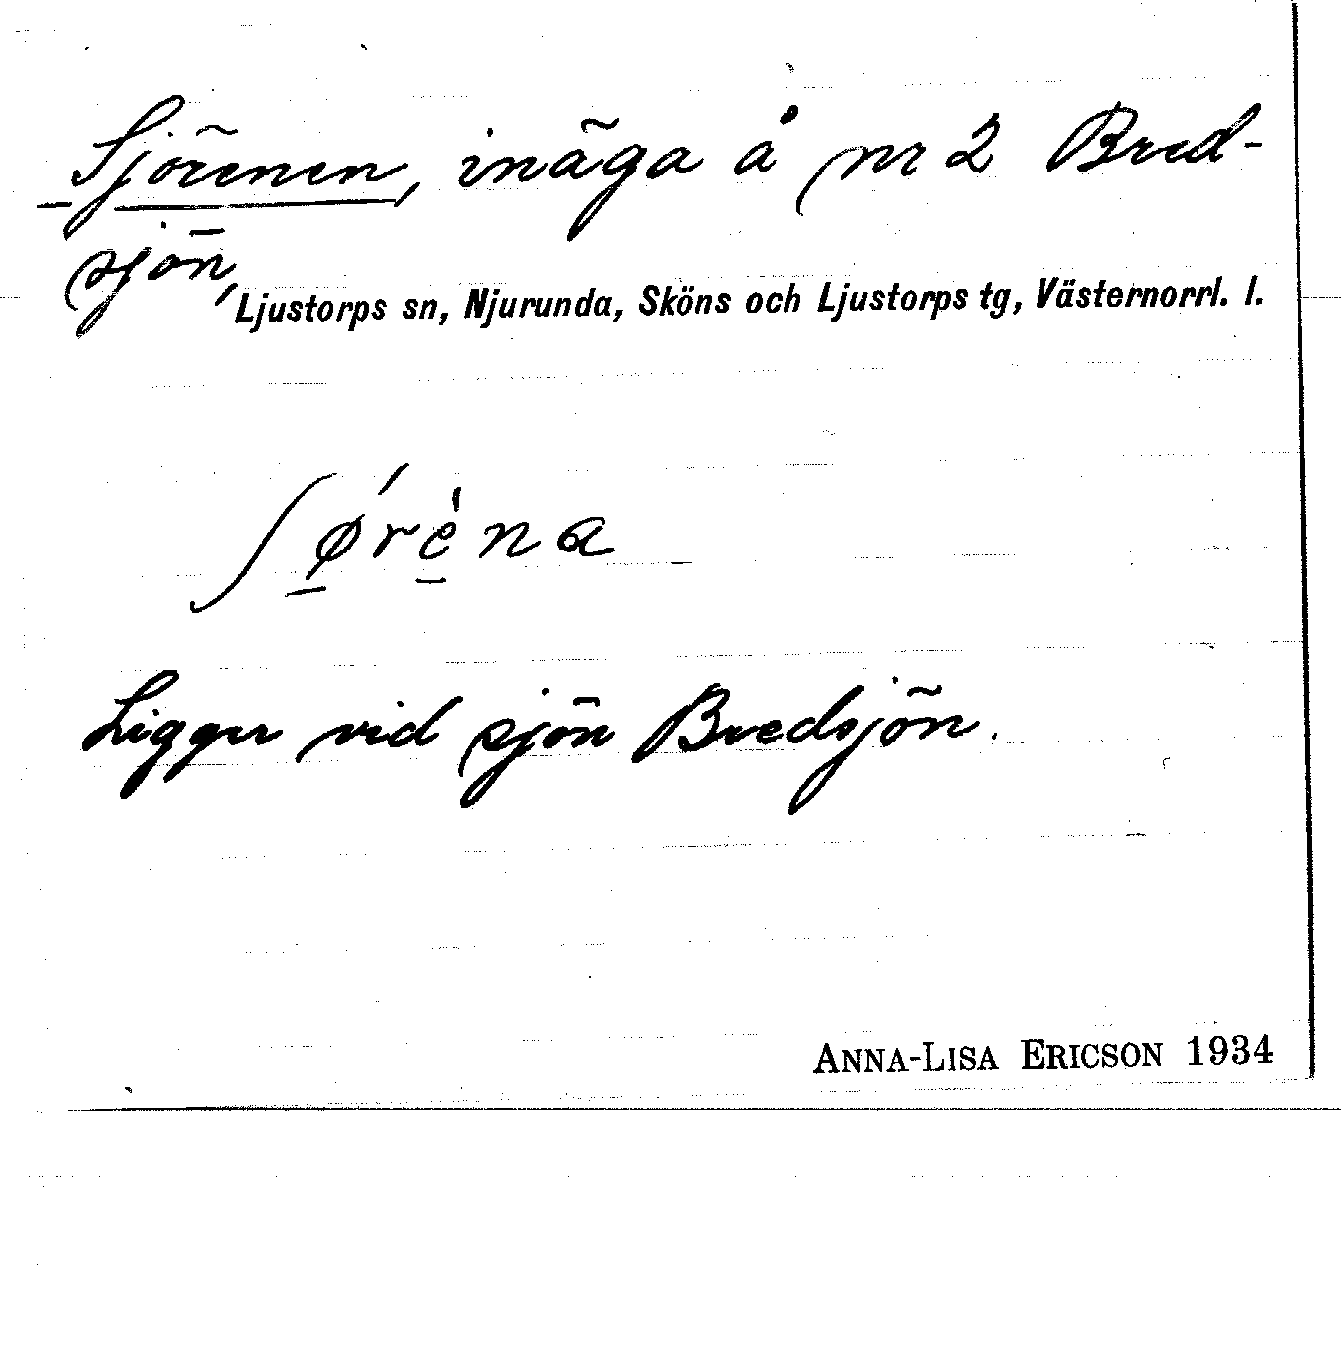 Sjörenen, inäga å nr 2 Bred-
sjön,
Ljustorps sn, Njurunda, Sköns och Ljustorps tg, Västernorrl. l.
ʃǿ̱rè̱na
Ligger vid sjön Bredsjön.
ANNA-LISA ERICSON 1934